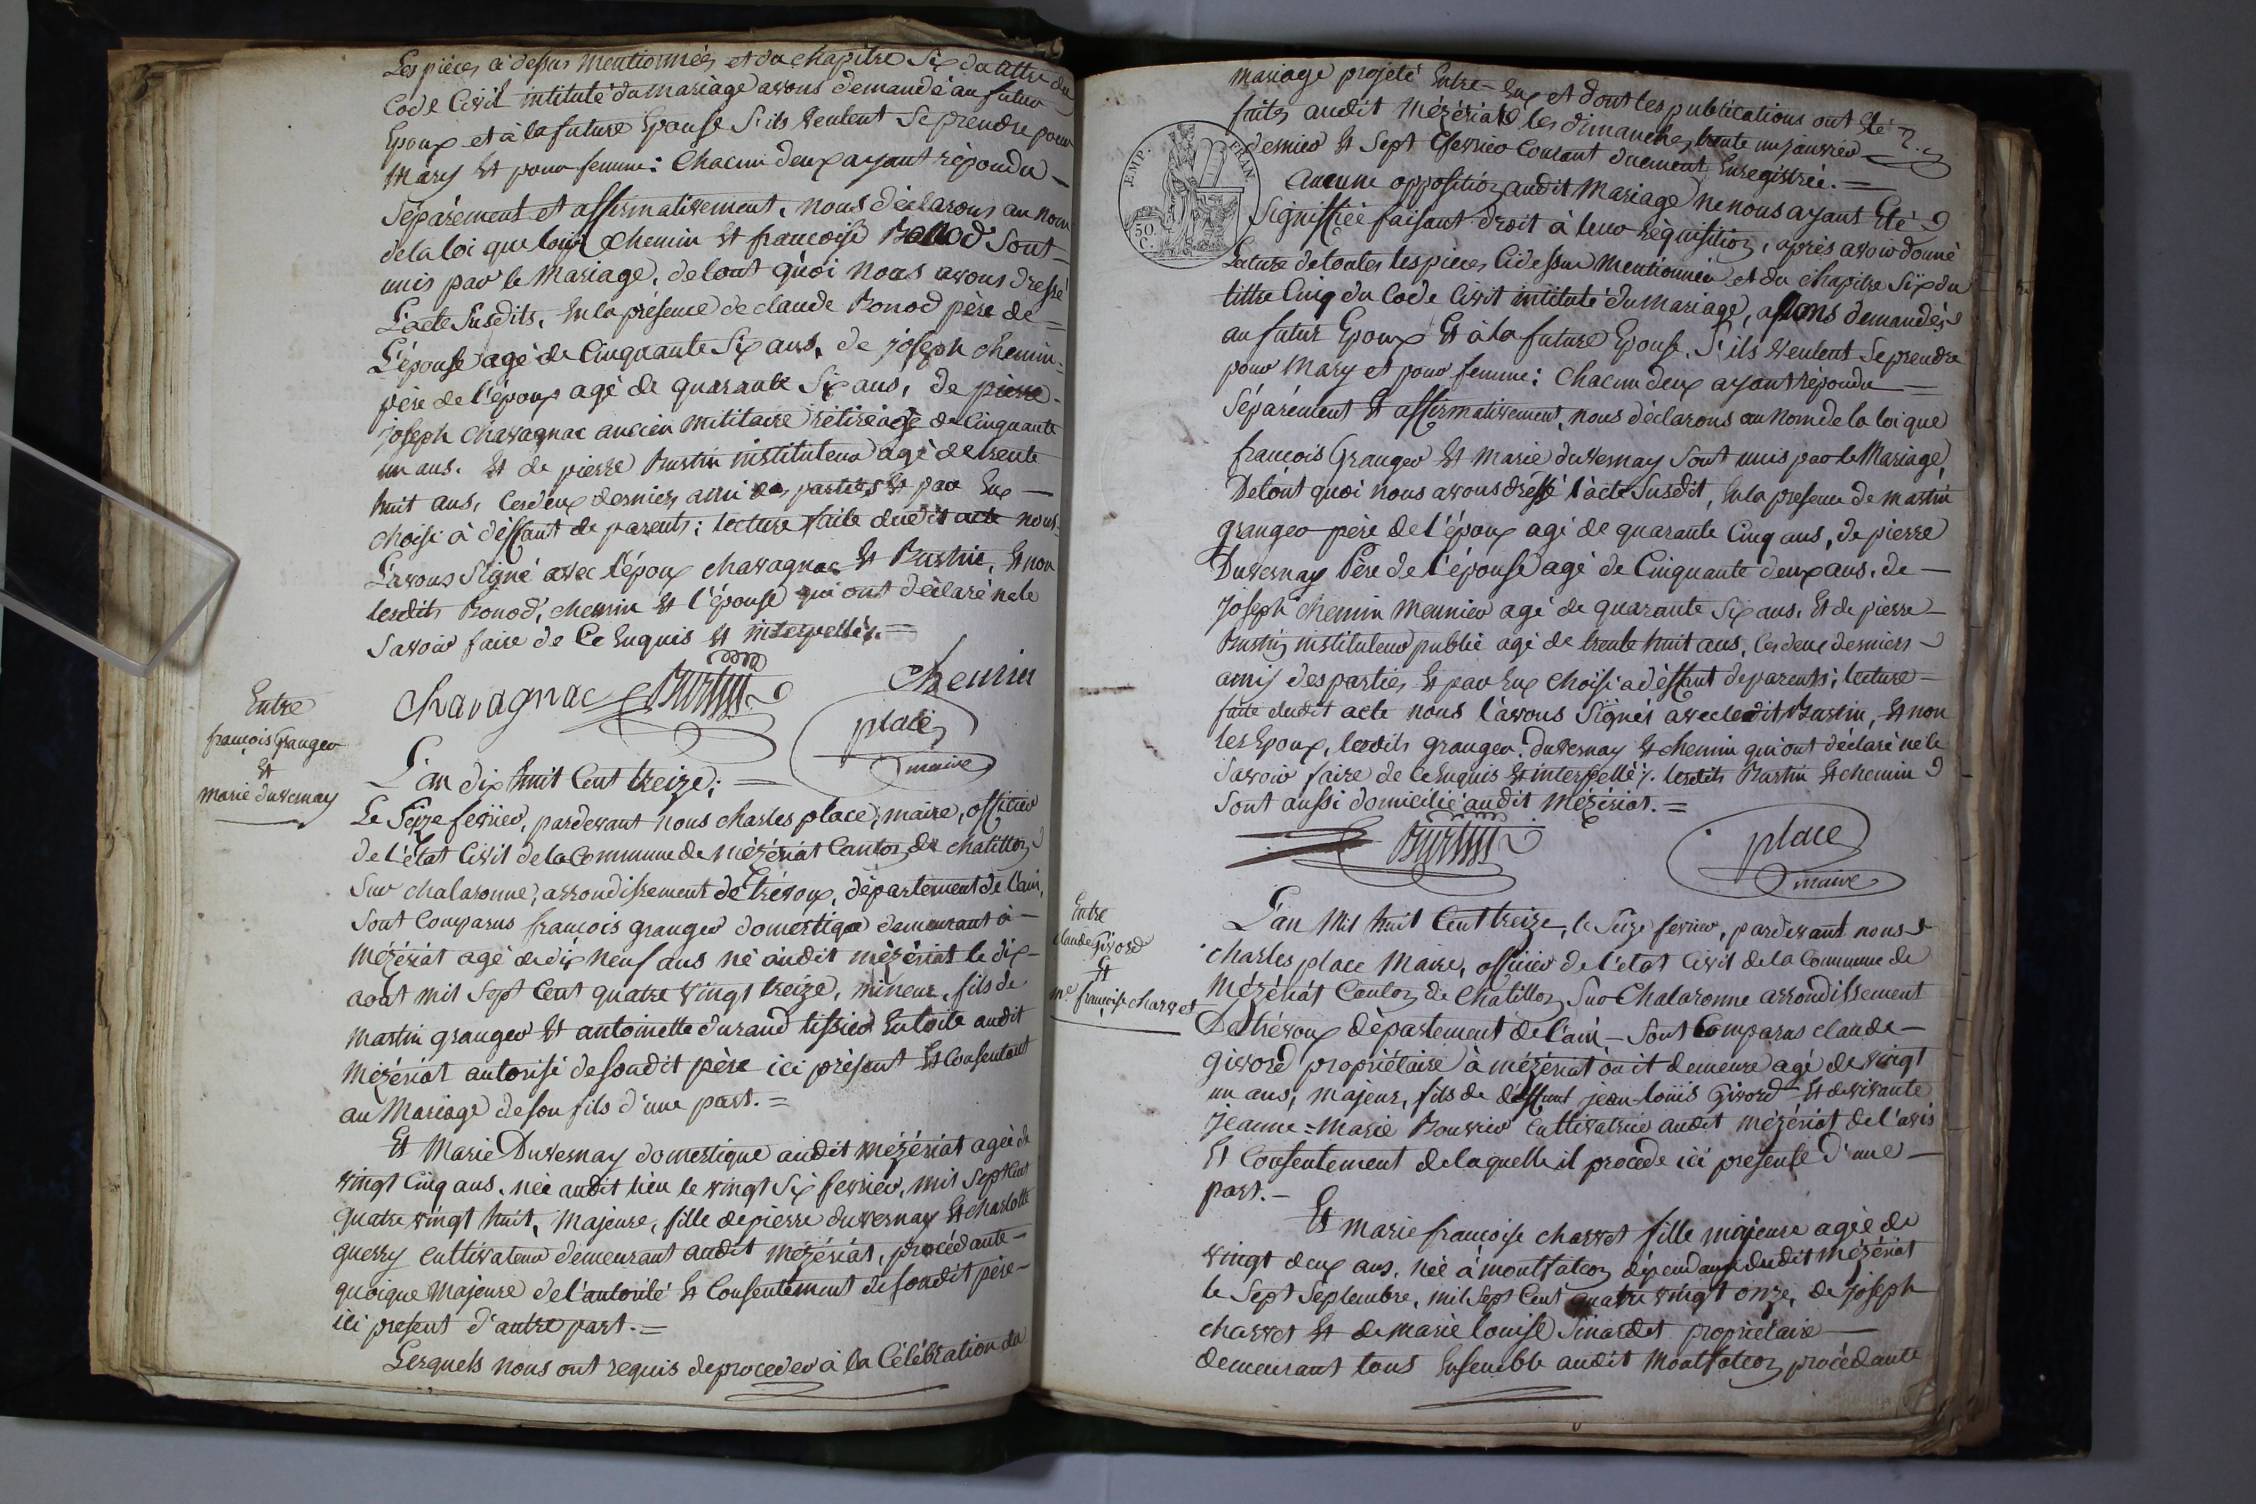 Les pièces ci dessus mentionnées et du chapitre Six du titre du
Code Civil intitulé du mariage avons demandé au futur
Epoux et à la future Epouse S'ils veulent Se prendre pour
Mary Et pour femme: Chacun deux ayant répondu —
Séparément et affirmativement, nous déclarons au nom
de la loi que louis Chemin Et francoise Bonod Sont —
unis par le Mariage, de tout quoi nous avons dressé
L'acte Susdits, En la présence de claude Bonod père de =
L'épouse agé de Cinquante Six ans, de joseph chemin =
père de l'époux agé de quarante Six ans, de pierre -
joseph Chavagnac ancien militaire retiré agé de Cinquante
un ans. Et de pierre Burtin instituteur agé de trente
huit ans, Ces deux derniers ami des parties Et par Eux —
choisi à déffaut de parents; lecture faite dudit acte nous =
L'avons Signé avec l'époux chavagnac Et Burtin, Et non
lesdits Bonod, chemin Et l'épouse qui ont déclaré ne le
Savoir faire de Ce Enquis Et interpellés. =
chemin
Chavagnac Burtin
place
maire
Entre
françois Granger
Et
marie duvernay
L'an dix huit Cent treize; =
Le Seize février, pardevant nous charles place, maire, officier
de l'état Civil de la Commune de mézériat Canton de chatillon
Sur chalaronne, arrondissement de trévoux, département de l'ain,
Sont Comparus françois granger domestique demeurant à —
Mézériat agé de dix neuf ans né audit mézériat le dix —
aout mil Sept Cent quatre vingt treize, mineur, fils de
martin granger Et antoinette durand tissier En toile audit
Mézériat autorisé de soudit père ici présent Et Consentant
au Mariage de son fils d'une part. =
Et Marie Duvernay domestique audit mézériat agée de
vingt Cinq ans, née audit lieu le vingt Six fevrier, mil Sept Cent
quatre vingt huit, Majeure, fille de pierre duvernay Et charlotte
guerry cultivateur demeurant audit mézériat, procédante —
quoique Majeure de l'autorité Et Consentement de soudit père —
ici présent d'autre part. =
Lesquels nous ont requis de proceder à la Célébration du
mariage projeté Entre Eux et dont les publications ont été
faites audit Mézériat les dimanches trente un janvier
dernier Et Sept fevrier Courant duement Enregistrée. =
TEMP. FRAN.
50
C.
Aucune opposition audit Mariage ne nous ayant Eté
Signiffiée faisant droit à leur réquisition, après avoir donné
Lecture de toutes les pieces Ci dessus mentionnée et du chapitre Six du
tittre Cinq du Code Civil intitulé du Mariage, avons demandés
au futur Epoux Et à la future Epouse, S'ils veulent Se prendre
pour Mary et pour femme: Chacun deux ayant répondu =
Séparément Et affirmativement, nous déclarons au nom de la loi que
françois Granger Et marie duvernay Sont unis par le Mariage,
De tout quoi nous avons dréssé l'acte Susdit, En la presence de martin
granger père de l'époux agé de quarante Cinq ans, de pierre
Duvernay Père de l'épouse agé de Cinquante deux ans, de —
joseph chemin Meunier agé de quarante Six ans, Et de pierre —
Burtin instituteur public agé de trente huit ans, les deux derniers —
amis des parties Et par Eux choisi a déffaut de parents; lecture —
faite dudit acte nous l'avons Signés avec ledit Burtin, Et non
les Epoux, lesdits granger, duvernay Et chemin qui ont déclaré ne le
Savoir faire de Ce Enquis Et interpellé. lesdits Burtin Et chemin
Sont aussi domicilié audit Mézériat. =
Burtin place
maire
Entre
claude Givord
Et
me. françoise charvet
L'an Mil huit Cent treize, le Seize fevrier, pardevant nous
Charles place Maire, officier de l'état Civil de la Commune de
Mézériat Canton de Chatillon Sur Chalaronne arrondissement
De trévoux département de l'ain — Sont Comparus claude —
givord propriétaire à mézériat où it demeure agé de vingt
un ans, majeur, fils de déffunt jean-louis Givord Et de vivante
Jeanne=Marie Bouvier cultivatrice audit mézériat de l'avis
Et Consentement de laquelle il procède ici presente d'une —
part. —
Et marie françoise charvet fille majeure agée de
vingt deux ans, née à montfalcon dépendance dudit Mézériat
le Sept Septembre, mil Sept Cent quatre vingt onze, de joseph
charvet Et de marie louise Sinardet propriétaire —
demeurant tous Ensemble audit Montfalcon procédante